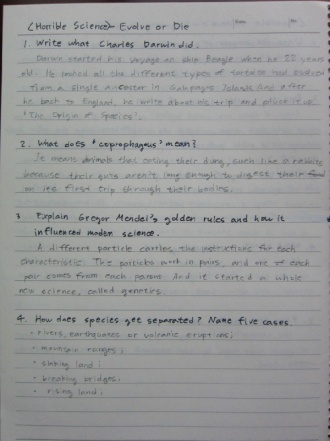 (Horrible Science)- Evolve or Die
1. Write what Charles Darwin did.
Darwin started his voyage on ship Beagle when he 22 years
old. He looked all the different types of tortoise had evolved
from a single ancestor in Galapagos Islands. And after
he back to England, he write about his trip and called it up
'The Origin of Species'.
2. What does 'coprophagous' mean?
It means animals that eating their dung, such like a rabbit
because their guts aren't long enough to digest their food
on its first trip through their bodies.
3. Explain Gregor Mendel's golden rules and how it
influenced modern science.
A different particle carries the instructions for each
characteristic. The particles work in pairs, and one of each
pair comes from each parent. And it started a whole
new science, called genetics.
4. How does species get separated? Name five cases.
· rivers, earthquakes or volcanic eruptions;
· mountain ranges;
· sinking land;
· breaking bridges;
· rising land;